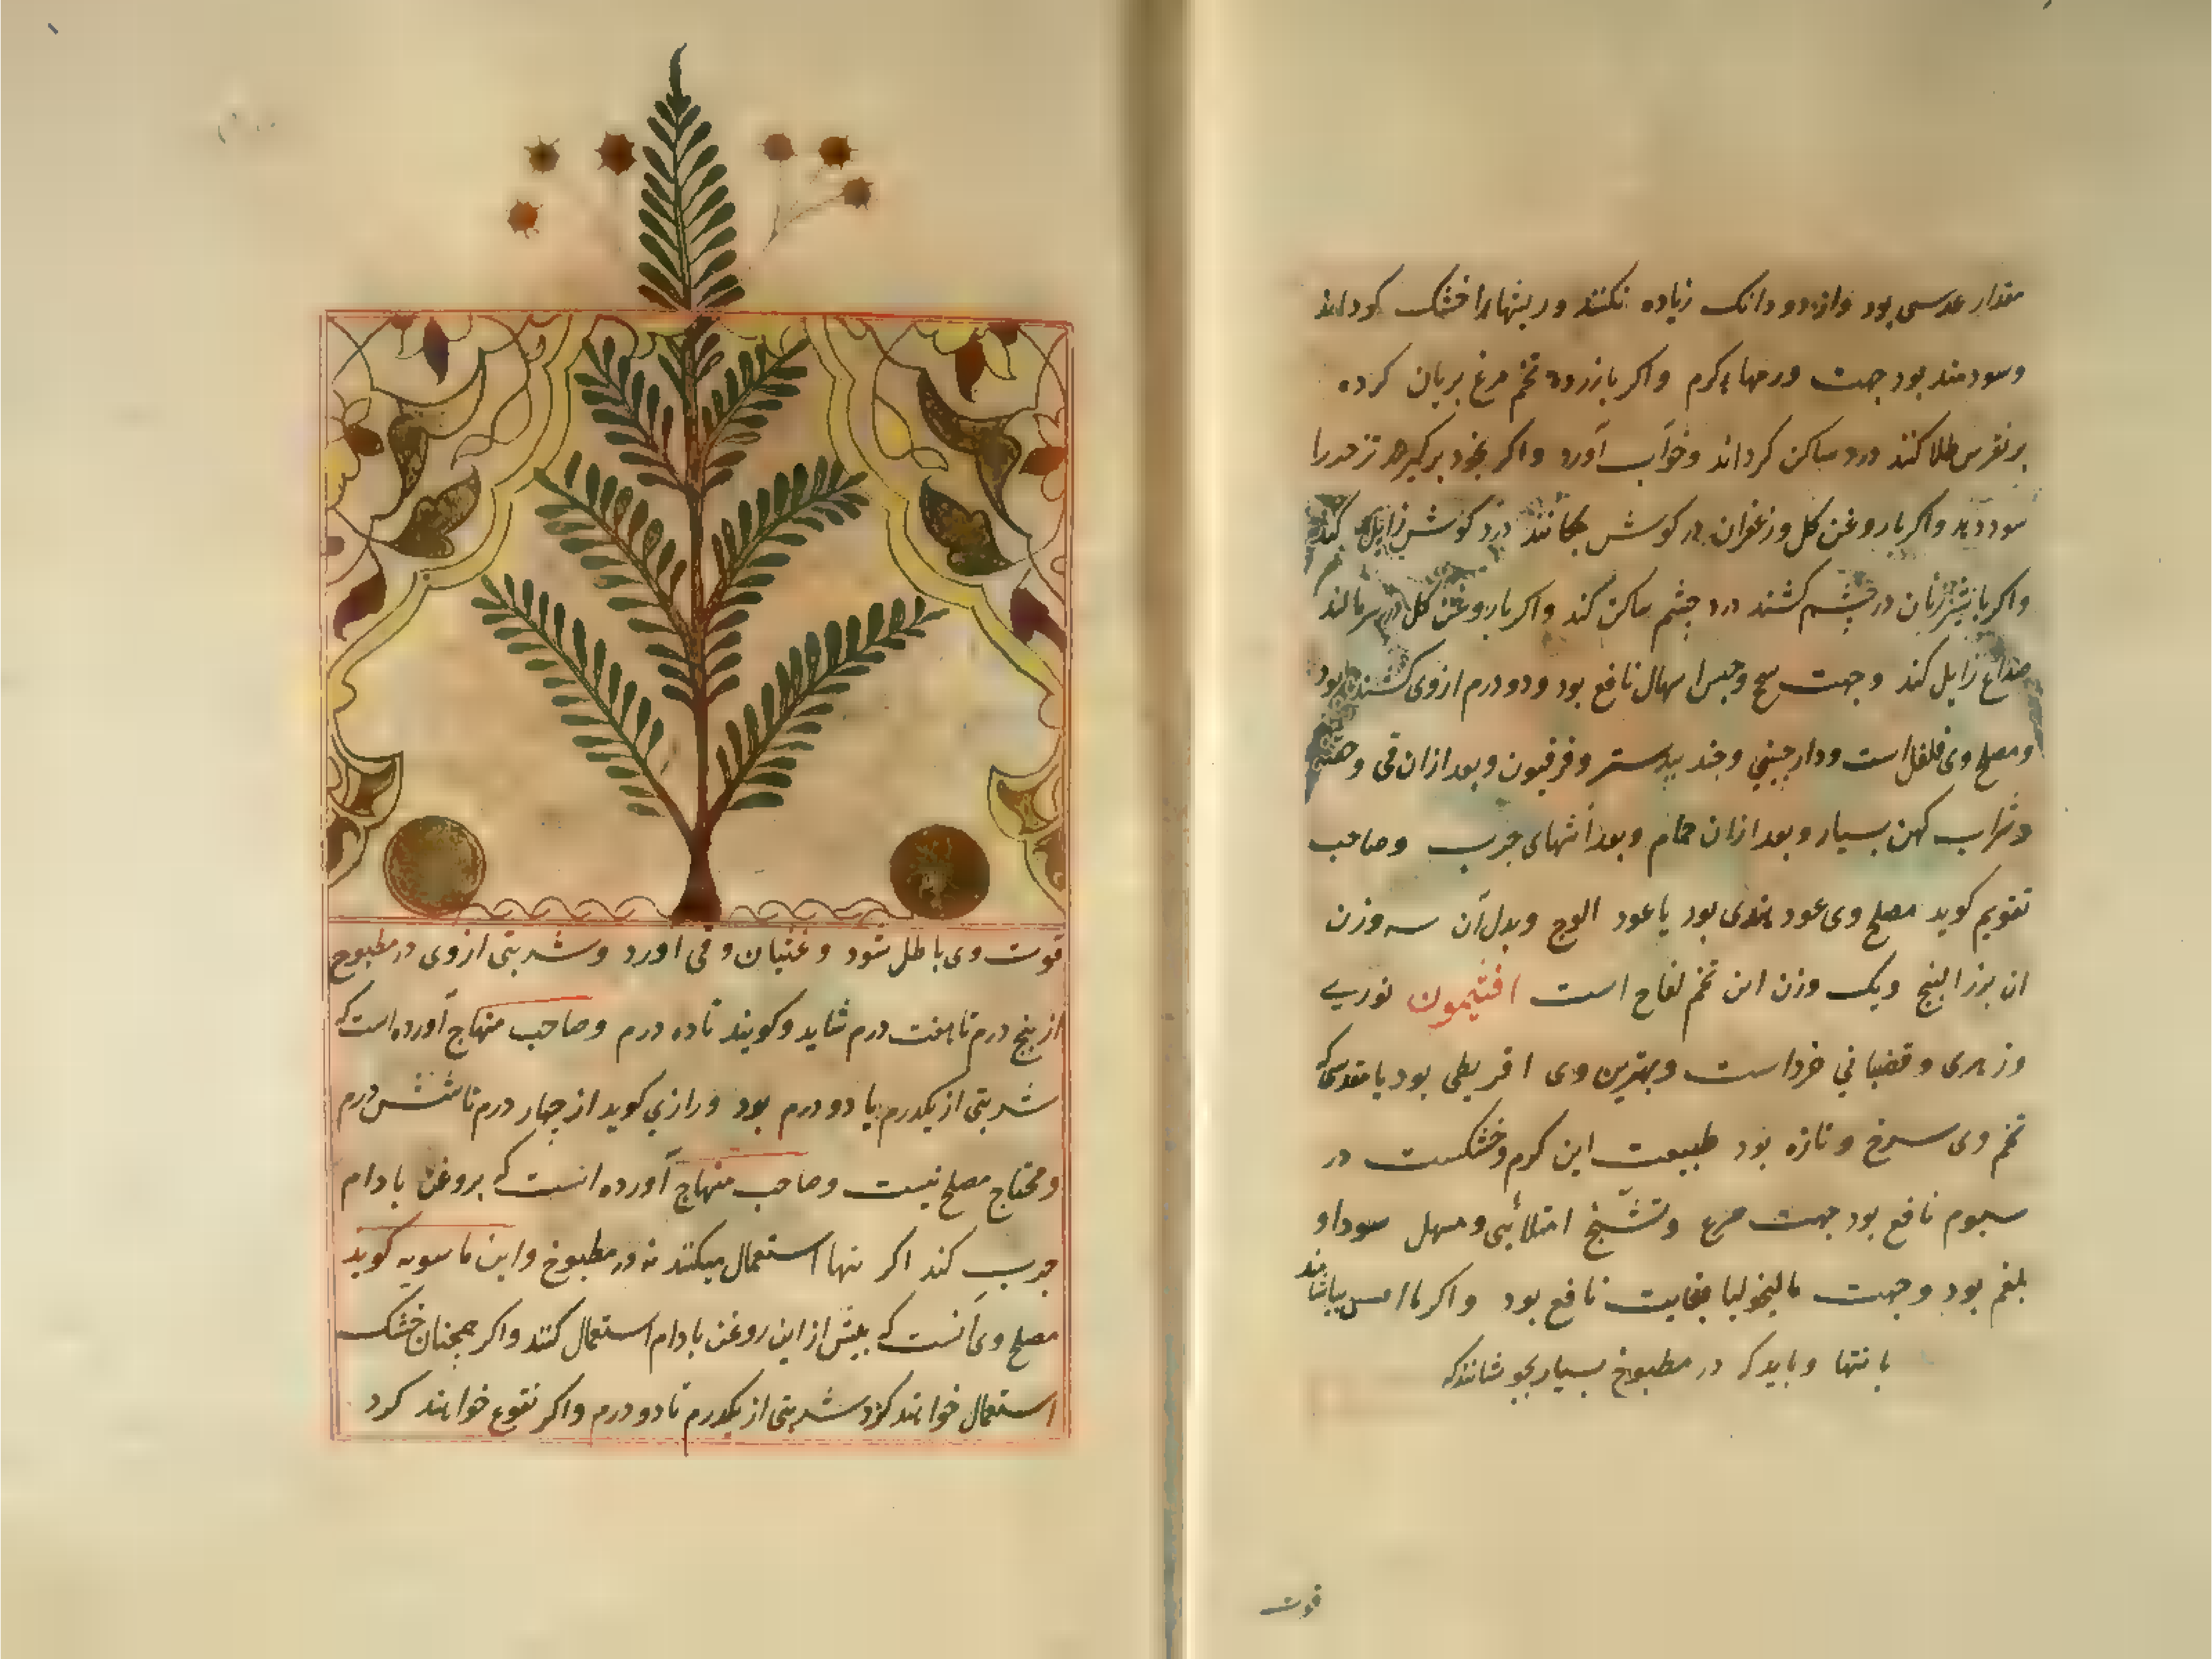 مقدار عدسی بود و از دو دانک زیاده نکنند و ریشها را خشک کرداند
و سودمند بود جهت ورمهاء کرم و اکر با زرده تخم مرغ بریان کرده
بر نقرس طلا کنند درد ساکن کرداند و خواب آورد و اکر بخود برکیرند
سود دهد و اکر با روغن کل و زعفران در کوش چکانند درد کوش زایل کند
و اکر با شیر زنان در چشم کشند درد چشم ساکن کند و اکر با روغن کل در سر مالند
صداع زایل کند و جهت سحج و حبس اسهال نافع بود و دو درم از وی کشنده بود
و مصلح وی فلفل است و دارچینی و جند بیدستر و فرفیون و بعد از ان قی و حقنه
و شراب کهن بسیار و بعد از ان حمام و بعد آشهای چرب و صاحب
تقویم کوید مصلح وی عود هندی بود یا عود الوج و بدل آن سه وزن
ان بزر البنج و یک وزن این تخم لفاح است افتیمون نوریی
و زهری و قضبانی خرد است و بهترین وی اقریطی بود یا مقدسی که
تخم وی سرخ و تازه بود طبیعت این کرم و خشکست در
سیوم نافع بود جهت صرع و تشنج امتلائی و مسهل سودا و
بلغم بود و جهت مالیخولیا بغایت نافع بود و اکر با بیاشامند
یا تنها و باید که در مطبوخ بسیار بجوشانند که
قوت
قوت وی باطل شود و غثیان و قی اورد و شربتی از وی در مطبوخ
از پنج درم تا هفت درم شاید و کویند تا ده درم و صاحب منهاج آورده است که
شربتی از یکدرم یا دو درم بود و رازی کوید از چهار درم تا شش درم
و محتاج مصلح نیست و صاحب منهاج آورده انست که بروغن بادام
چرب کند اکر تنها استعمال میکنند نه در مطبوخ و ابن ماسویه کوید
مصلح وی آنست که پیش از این روغن بادام استعمال کنند و اکر همچنان خشک
استعمال خواهند کرد شربتی از یکدرم تا دو درم و اکر نقوع خواهند کرد